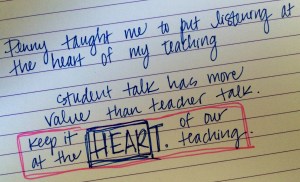 Penny taught me to put listening at
the heart of my teaching
student talk has more
value than teacher talk.
keep it
at the HEART. of our
teaching.